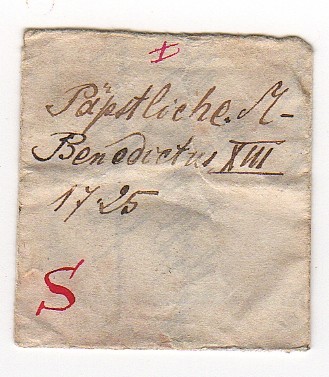 +
Päpstliche. M-
Benedictus XIII
1725
S